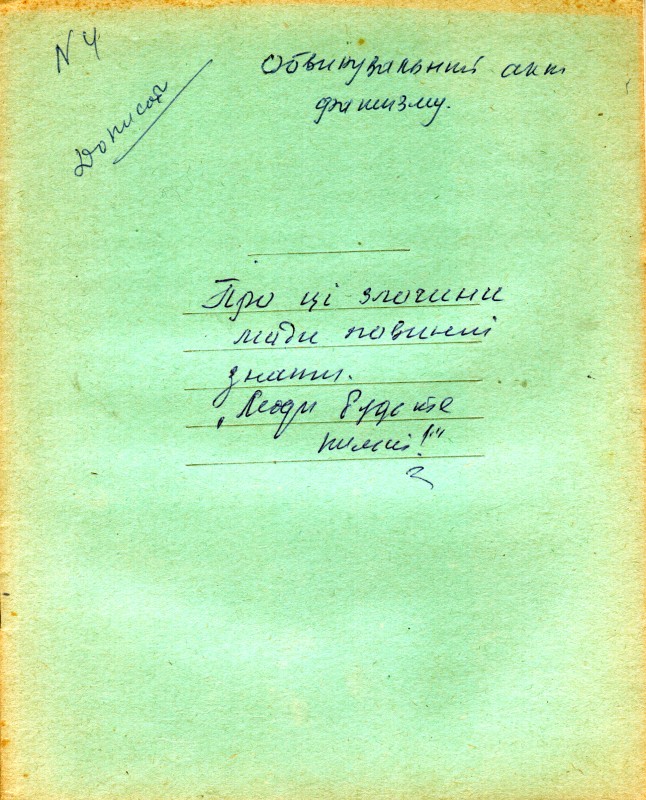 N 4
Дописат
Обвинувальний акт
фашизму.
Про ці злочини
люди повинні
знати.
„Люди будьте
пильні!"